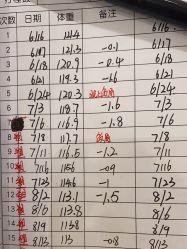 次数 日期 体重 备注
1 6/16 121.4 6/16
2 6/17 121.3 -0.1 6/17
3 6/18 120.9 -0.4 6/18
4 6/21 119.3 -1.6 6/21
5 6/24 120.3 6/24
6 7/3 118.7 -1.6 7/3
7/6 116.9 -1.8 7/6
8 7/8 117.7 7/8
9 7/11 116.5 -1.2 7/11
10 7/16 115.6 -0.9 7/16
11 7/23 114.6 -1 7/23
12 8/2 113.1 -1.5 8/2
13 8/6 113.8 8/6
14 8/9 113.8 8/9
15 8/13 113 -0.8 8/13